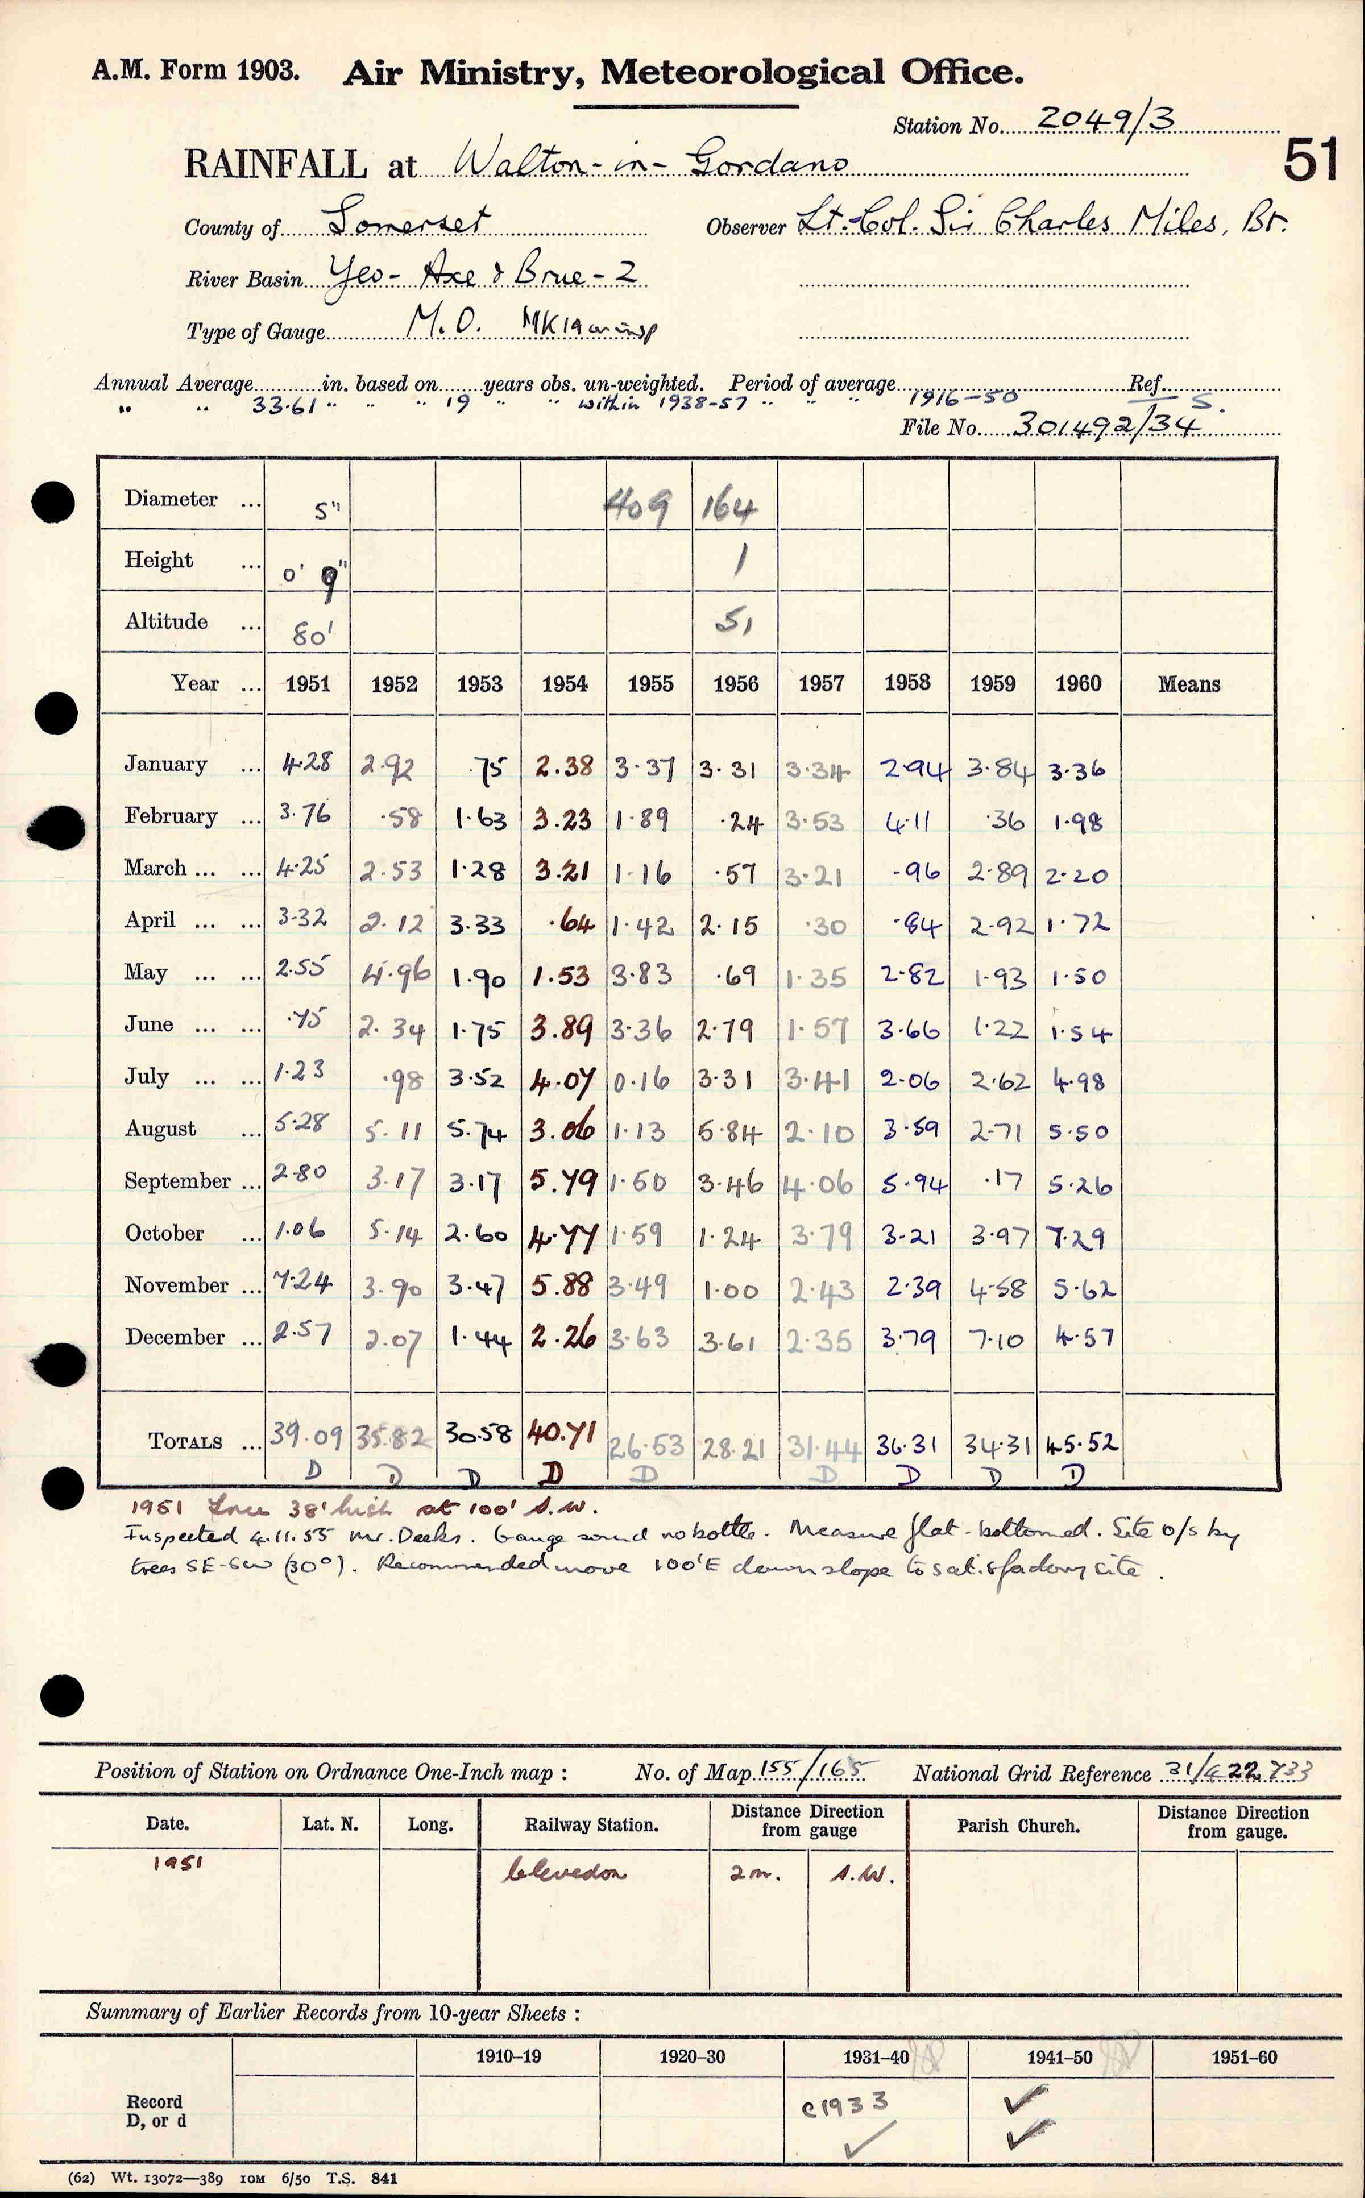 A.M. Form 1903. Air Ministry, Meteorological Office.
Station No. 2049/3
51
RAINFALL at Walton-in-Gordano
County of Somerset Observer Lt.-Col. Sir Charles Miles, Bt.
River Basin Yeo- Axe & Brue-2
Type of Gauge M.O. MK1A on insp
Annual Average in. based on years obs. un-weighted. Period of average Ref.
" " 33.61 " " " 19 " " within 1938-57 " " " 1916-50 S.
File No. 301492/34
Diameter ... 5" 409 164
Height ... 0' 9" 1
Altitude ... 80' 51
Year ... 1951 1952 1953 1954 1955 1956 1957 1958 1959 1960 Means
January ... 4.28 2.92 .75 2.38 3.37 3.31 3.34 2.94 3.84 3.36
February ... 3.76 .58 1.63 3.23 1.89 .24 3.53 4.11 .36 1.98
March ... ... 4.25 2.53 1.28 3.21 1.16 .57 3.21 .96 2.89 2.20
April ... ... 3.32 2.12 3.33 .64 1.42 2.15 .30 .84 2.92 1.72
May ... ... 2.55 4.96 1.90 1.53 3.83 .69 1.35 2.82 1.93 1.50
June ... ... .75 2.34 1.75 3.89 3.36 2.79 1.57 3.66 1.22 1.54
July ... ... 1.23 .98 3.52 4.07 0.16 3.31 3.41 2.06 2.62 4.98
August ... 5.28 5.11 5.74 3.06 1.13 5.84 2.10 3.59 2.71 5.50
September ... 2.80 3.17 3.17 5.79 1.50 3.46 4.06 5.94 .17 5.26
October ... 1.06 5.14 2.60 4.77 1.59 1.24 3.79 3.21 3.97 7.29
November ... 7.24 3.90 3.47 5.88 3.49 1.00 2.43 2.39 4.58 5.62
December ... 2.57 2.07 1.44 2.26 3.63 3.61 2.35 3.79 7.10 4.57
TOTALS ... 39.09 35.82 30.58 40.71 26.53 28.21 31.44 36.31 34.31 45.52
D D D D D D D D D
1951 Tree 38' high at 100' S.W.
Inspected 4.11.55 Mr. Deeks. Gauge sound no bottle. Measure flat-bottomed. Site o/s by
trees SE-SW (30°). Recommended move 100'E down slope to satisfactory site.
Position of Station on Ordnance One-Inch map : No. of Map 155/165 National Grid Reference 31/422733
Date. Lat. N. Long. Railway Station. Distance Direction from gauge Parish Church. Distance Direction from gauge.
1951 Clevedon 2m. S.W.
Summary of Earlier Records from 10-year Sheets :
1910–19 1920–30 1931–40 1941–50 1951–60
Record
D, or d
c1933
(62) Wt. 13072—389 10M 6/50 T.S. 841